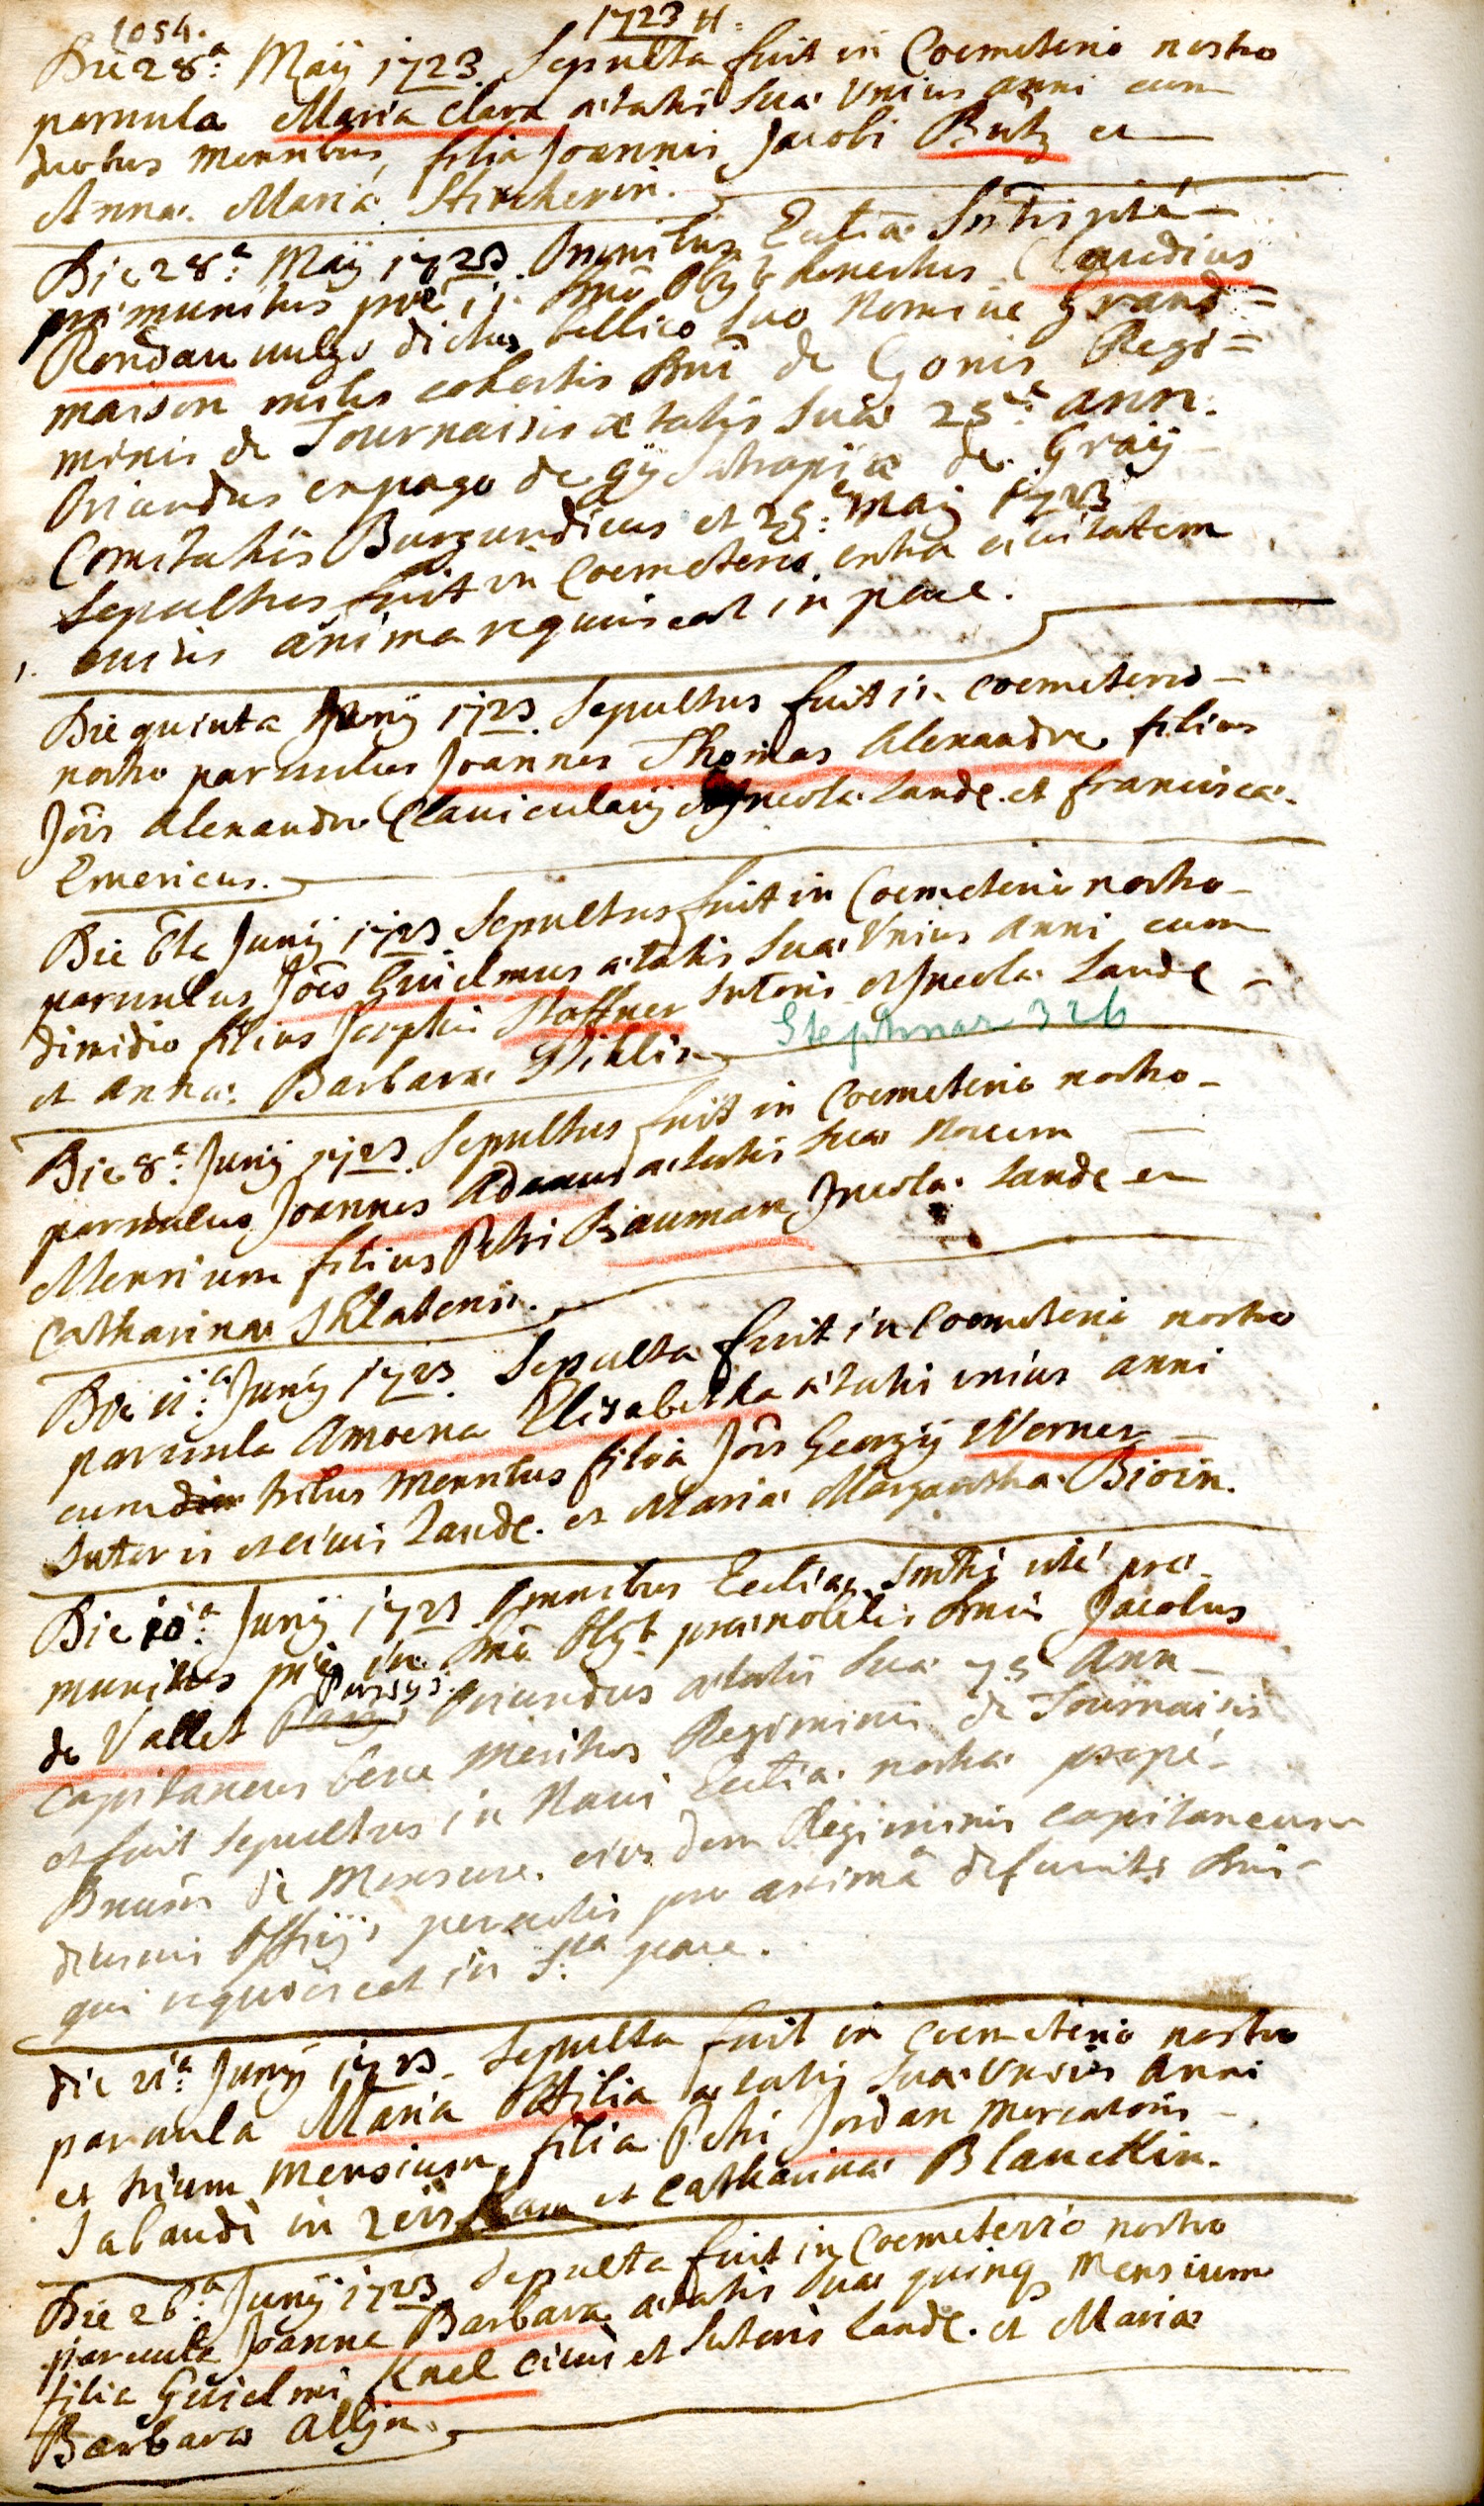 1054. 1723 H:
Die 28.a Maij 1723 Sepulta fuit in Coemeterio nostro
parvula Maria Clara ætatis Suæ Unius anni cum
duobus mensibus, filia Joannis Jacobi Butz et
Annæ Mariæ Stircherin.
Die 28.a Maij 1723 Omnibus Eccliæ Sntis rité
præmunitus pié in Dnô Obijt honestus Claudius
Rondau vulgo dictus bellico suo Nomine Grand=
maison miles cohortis Dni de Gonis Regi=
minis de Tournaisis ætatis Suæ 25.æ ann:
Oriundus ex pago de Gÿ Satrapiæ de Graÿ
Comitatûs Burgundicus et 29.a Maij 1723
Sepultus fuit in Coemeterio extra civitatem
cuius anima requiescat in pace.
Die quinta Junij 1723 Sepultus fuit in coemeterio
nostro parvulus Joannes Thomas Alexandre filius
Jois Alexandre Clavicularij Incolæ Landæ. et franciscæ
Emericus.
Die 6ta Junij 1723 Sepultus fuit in Coemeterio nostro
parvulus Joes Guielmus ætatis Suæ Unius Anni cum
dimidio filius Josephi Stoffner Sutoris et Incolæ Landæ
et Annæ Barbaræ
Stephnar 326
Die 8.a Junij 1723 Sepultus fuit in Coemeterio nostro
parvulus Joannes Adamus ætatis Suæ Novem
Mensium filius Petri Bauman Incolæ Landæ et
Catharinæ
Die 11.a Junij 1723 Sepulta fuit in Coemeterio nostro
parvula Amoena Elisabetha ætatis unius anni
cum tribus mensibus filia Jois Georgij Werner
Sutoris et civis Landæ. et Mariæ Margarethæ Bioin.
Die 10.a Junij 1723 Omnibus Eccliæ Sntis rité præ
munitus pié in Dnô Obijt prænobilis Dnus Jacobus
de Vallet Parisijs Oriundus ætatis Suæ 75 Ann
Capitaneus bene meritus Regiminis de Tournaisis
et fuit Sepultus in Navi Eccliæ nostræ propé
Dnum de eiusdem Regiminis capitaneum
divinis Officijs peractis pro animâ defuncti Dni
qui requiescat in S.ta pace.
die 21.a Junij 1723 Sepulta fuit in Coemeterio nostro
parvula Maria Ottilia ætatis Suæ Unius Anni
et trium mensium, filia Petri Jordan mercatoris
Sabaudi in et Catharinæ Blanckin.
Die 26.a Junij 1723 Sepulta fuit in Coemeterio nostro
parvula Joanna Barbara ætatis Suæ quinq mensium
filia Guielmi Knel civis et Sutoris Landæ. et Mariæ
Barbaræ Allgin.